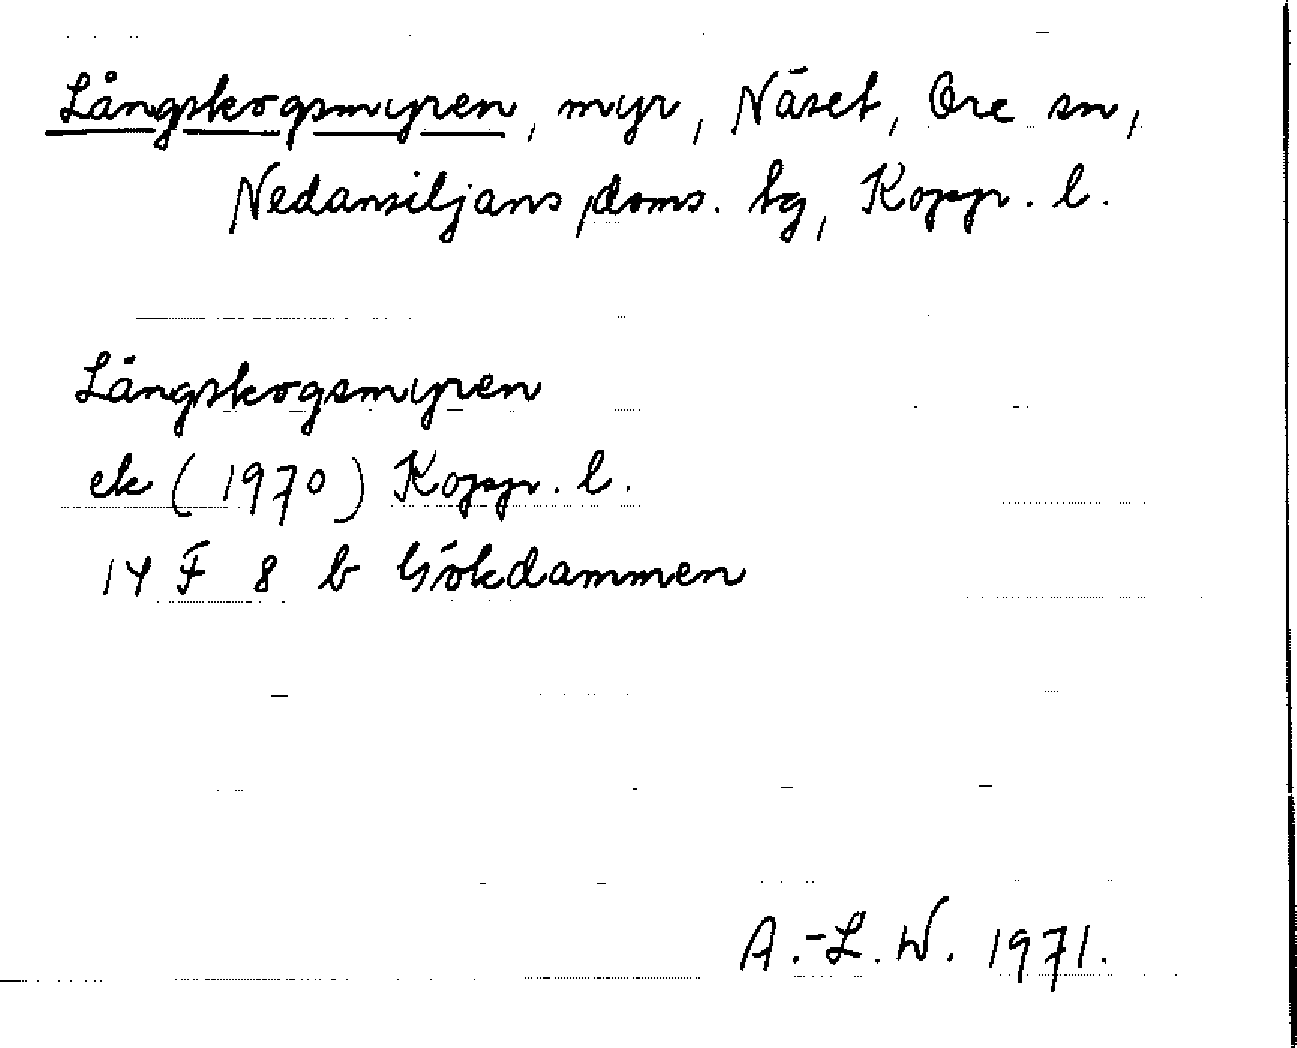 Långskogsmyren, myr, Näset, Ore sn,
Nedansiljans doms. tg, Koppr. l.
Långskogsmyren
ek (1970) Koppr. l.
14 F 8 b Gökdammen
A.-L. W. 1971.